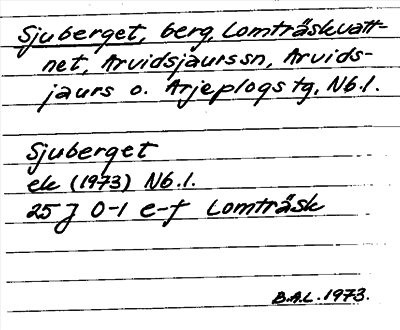 Sjuberget, berg, Lomträskvatt-
net, Arvidsjaurssn, Arvids-
jaurs o. Arjeplogs tg, Nb. l.
Sjuberget
ek (1973) Nb. l.
25 J 0-1 e-f Lomträsk
B.A.L. 1973.